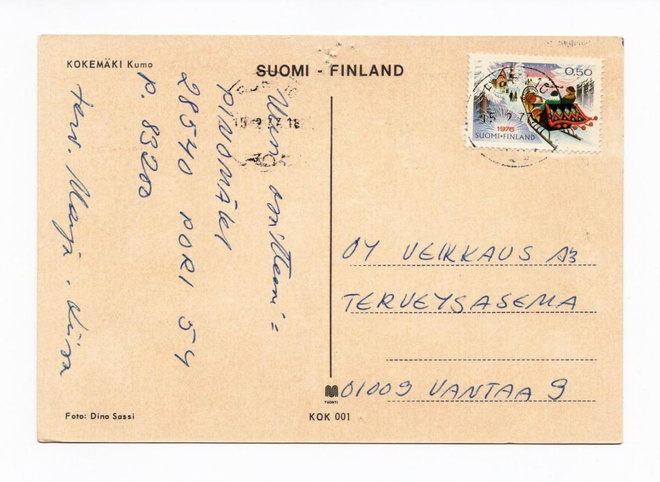 KOKEMÄKI Kumo
SUOMI - FINLAND
0,50
1976
SUOMI•FINLAND
osoitteeni =
PINOMÄKI
28540 PORI 54
p. 83200
Terv. Marja-Liisa
OY VEIKKAUS AB
TERVEYSASEMA
01009 VANTAA 9
Foto: Dino Sassi
KOK 001